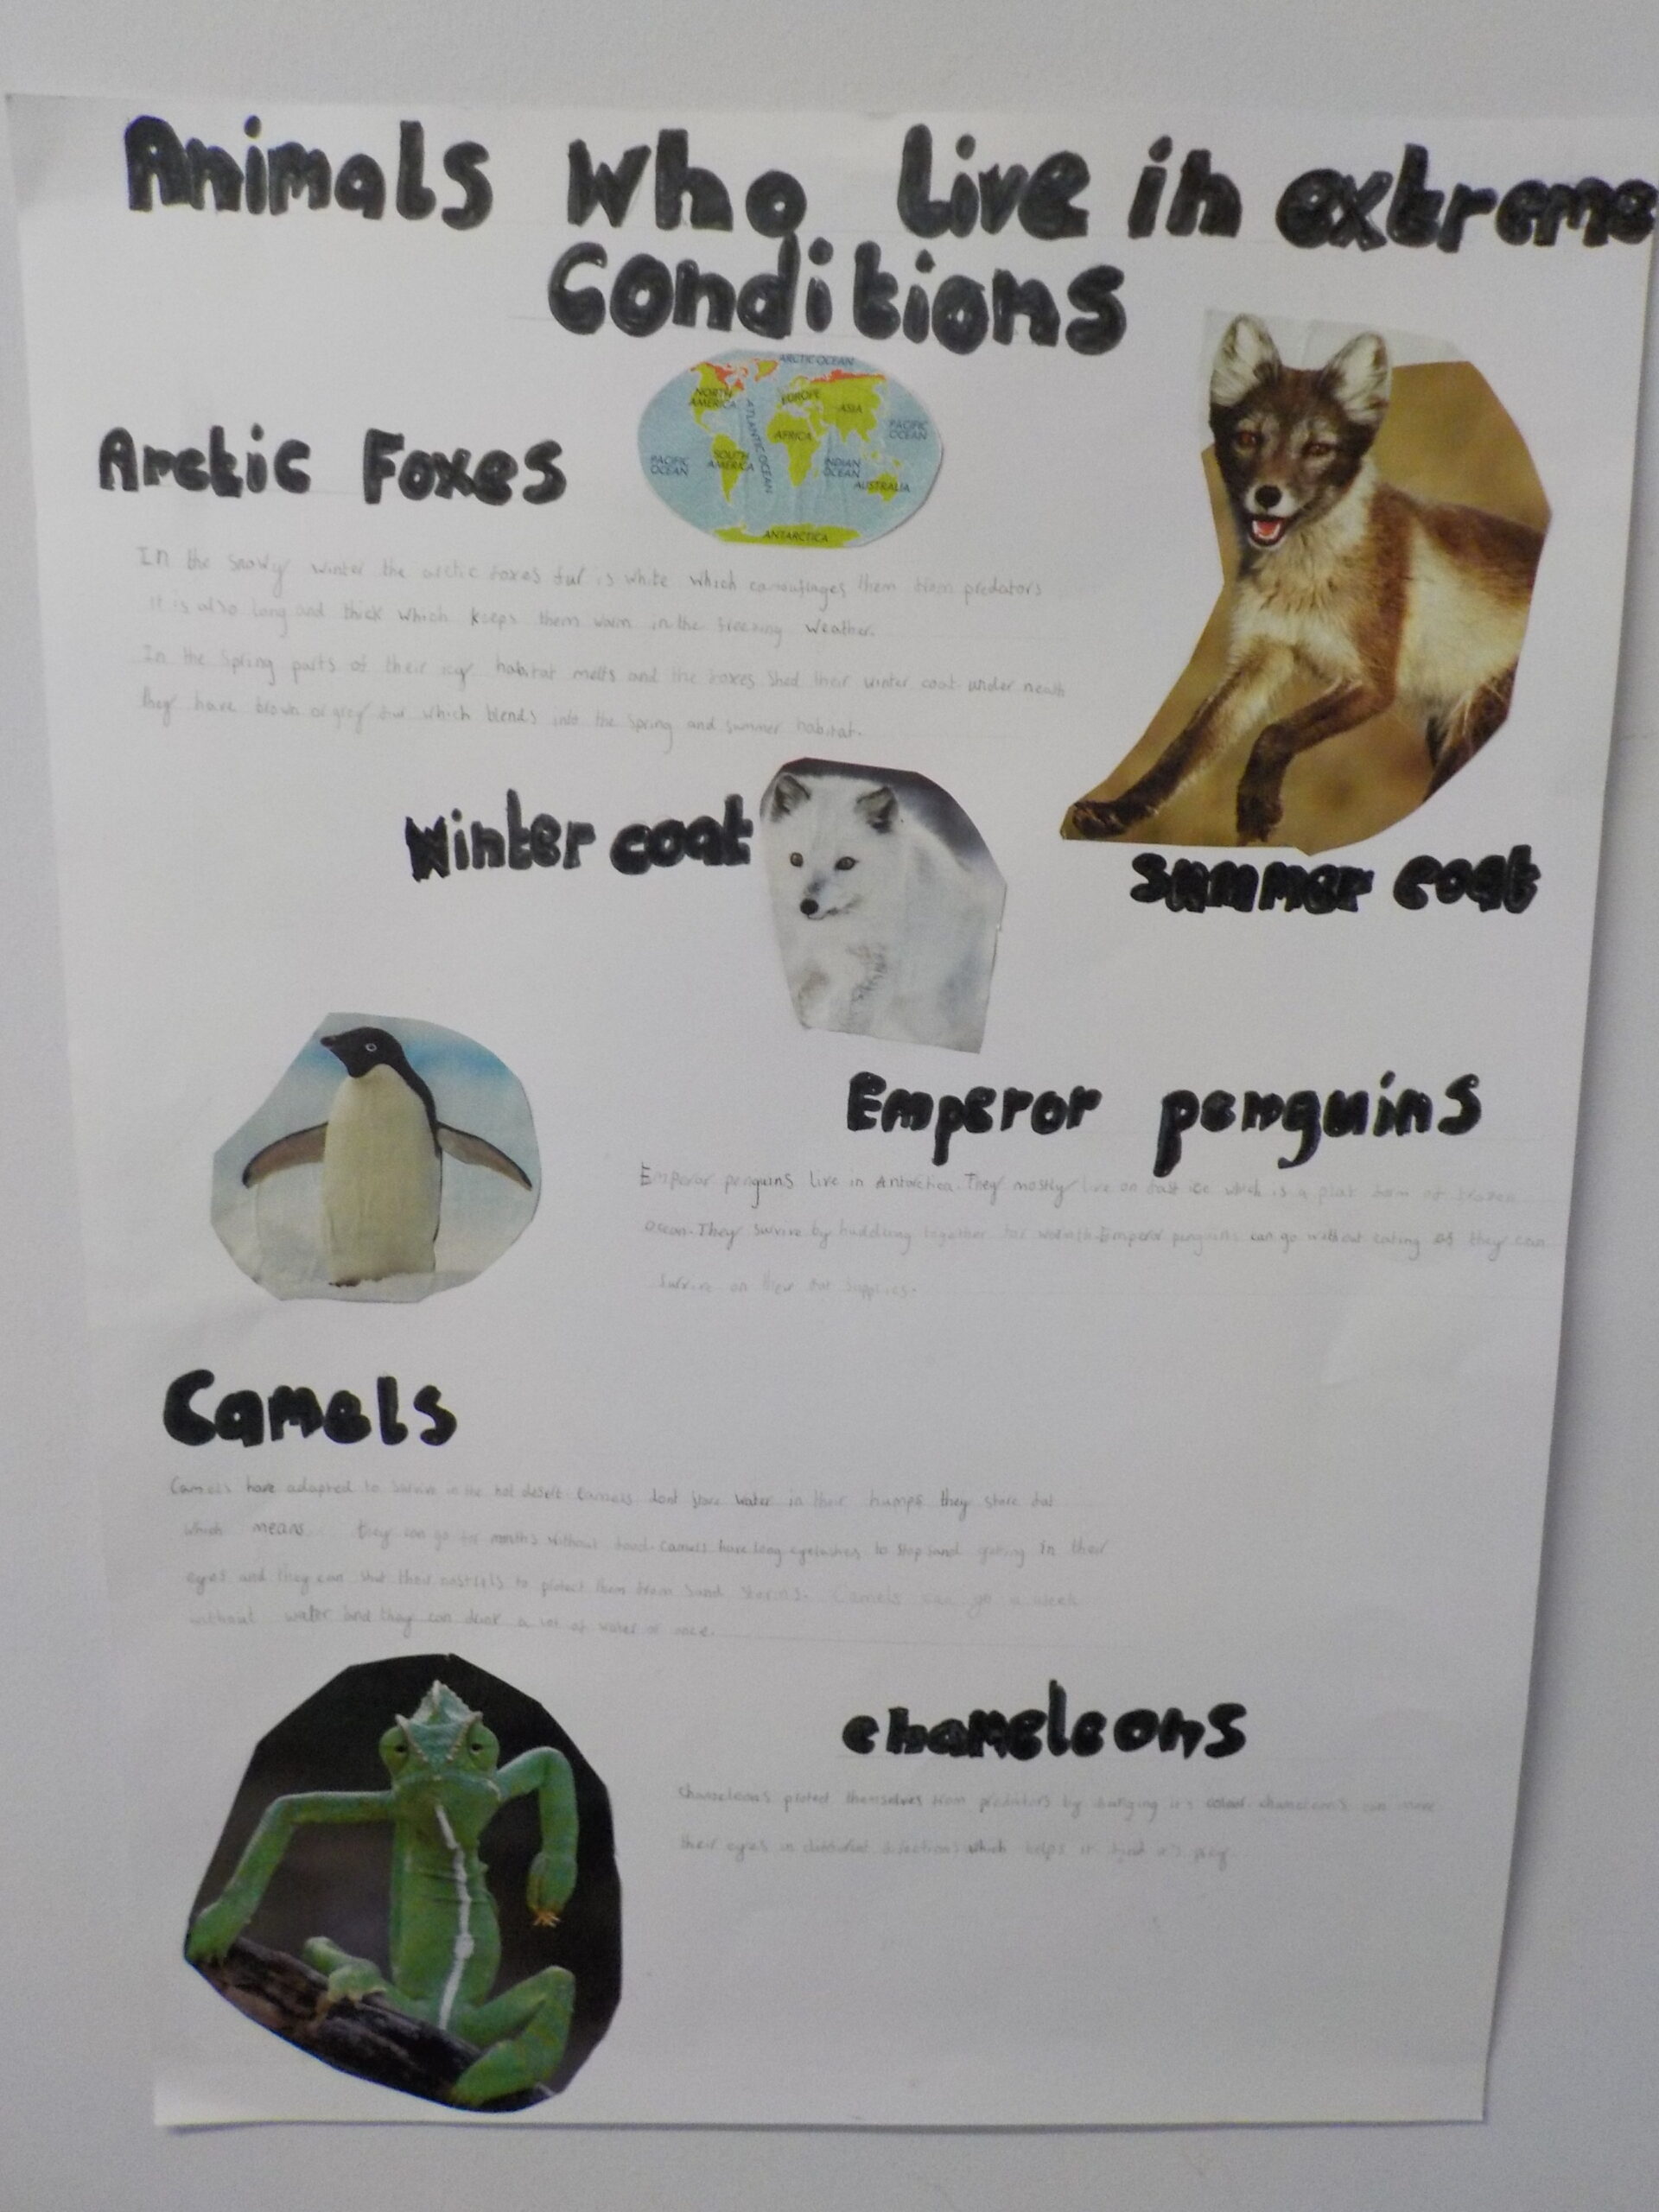 Animals Who Live in extreme
Conditions
ARCTIC OCEAN
NORTH AMERICA
EUROPE
ASIA
ATLANTIC OCEAN
AFRICA
PACIFIC OCEAN
PACIFIC OCEAN
SOUTH AMERICA
INDIAN OCEAN
AUSTRALIA
ANTARCTICA
Arctic Foxes
In the snowy winter the arctic foxes fur is white which camouflages them from predators
it is also long and thick which keeps them warm in the freezing weather.
In the spring parts of their icy habitat melts and the foxes shed their winter coat. under neath
they have brown or grey fur which blends into the spring and summer habitat.
Winter coat
Summer coat
Emperor penguins
Emperor penguins live in Antarctica. They mostly live on fast ice which is a plat form of frozen
ocean. They survive by huddling together for warmth. Emperor penguins can go without eating as they can
survive on their fat supplies.
Camels
Camels have adapted to survive in the hot desert. Camels dont store water in their humps they store fat
which means they can go for months without food. Camels have long eyelashes to stop sand getting in their
eyes and they can shut their nostrils to protect them from sand storms. Camels can go a week
without water and they can drink a lot of water at once.
chameleons
chameleons themselves from predators by it's colour. chameleons can move
their eyes in different directions which helps it find it's prey.